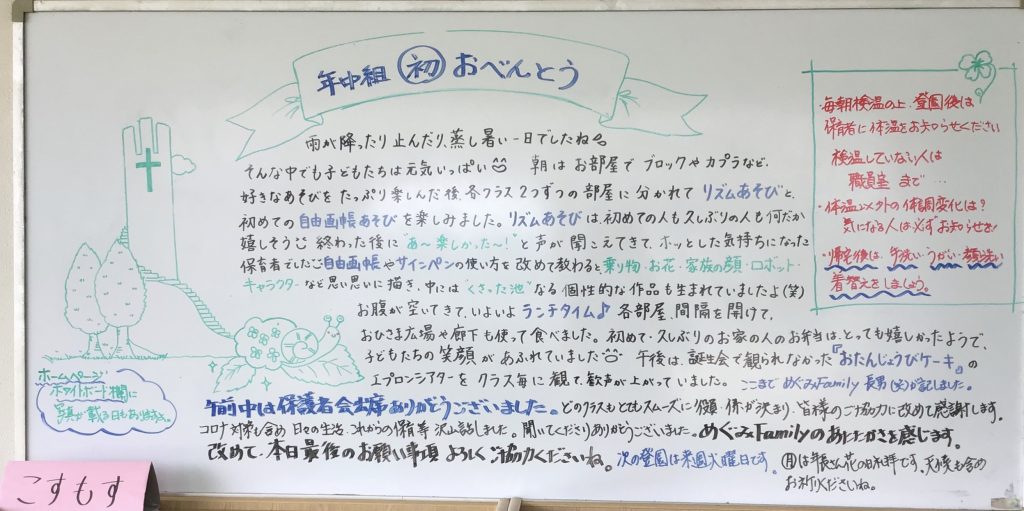 年中組 初 おべんとう
雨が降ったり止んだり、蒸し暑い一日でしたね
そんな中でも子どもたちは元気いっぱい 朝はお部屋でブロックやカプラなど、
好きなあそびをたっぷり楽しんだ後、各クラス2つずつの部屋に分かれてリズムあそびと、
初めての自由画帳あそびを楽しみました。リズムあそびは、初めての人も久しぶりの人も何だか
嬉しそう 終わった後に"あ〜楽しかった〜!"と声が聞こえてきて、ホッとした気持ちになった
保育者でした 自由画帳やサインペンの使い方を改めて教わると、乗り物・お花・家族の顔・ロボット・
キャラクターなど思い思いに描き、中には"くさった池"なる個性的な作品も生まれていましたよ(笑)
お腹が空いてきて、いよいよランチタイム♪ 各部屋、間隔を開けて、
おひさま広場や廊下も使って食べました。初めて・久しぶりのお家の人のお弁当は、とっても嬉しかったようで、
子どもたちの笑顔があふれていました 午後は、誕生会で観られなかった『おたんじょうびケーキ』の
エプロンシアターをクラス毎に観て、歓声が上がっていました。 ここまでめぐみFamily 長男(父)が記しました。
午前中は保護者会出席ありがとうございました。どのクラスもとてもスムーズに役・係が決まり、皆様のご協力に改めて感謝します。
コロナ対策も含め 日々の生活、これからの保育等 沢山話しました。聞いてくださりありがとうございました。めぐみFamilyのあたたかさを感じます。
改めて、本日最後のお願い事項 よろしくご協力くださいね。次の登園は来週火曜日です。 月は年長さん花の日礼拝です。天候も含め
お祈りくださいね。
・毎朝検温の上、登園後は
保育者に体温をお知らせください
検温していない人は
職員室まで…
・体温以外の体調変化は?
気になる人は必ずお知らせを!
・帰宅後は、手洗い・うがい・顔洗い
着替えをしましょう。
ホームページ
ホワイトボード欄に
写真が載る日もあります。
こすもす